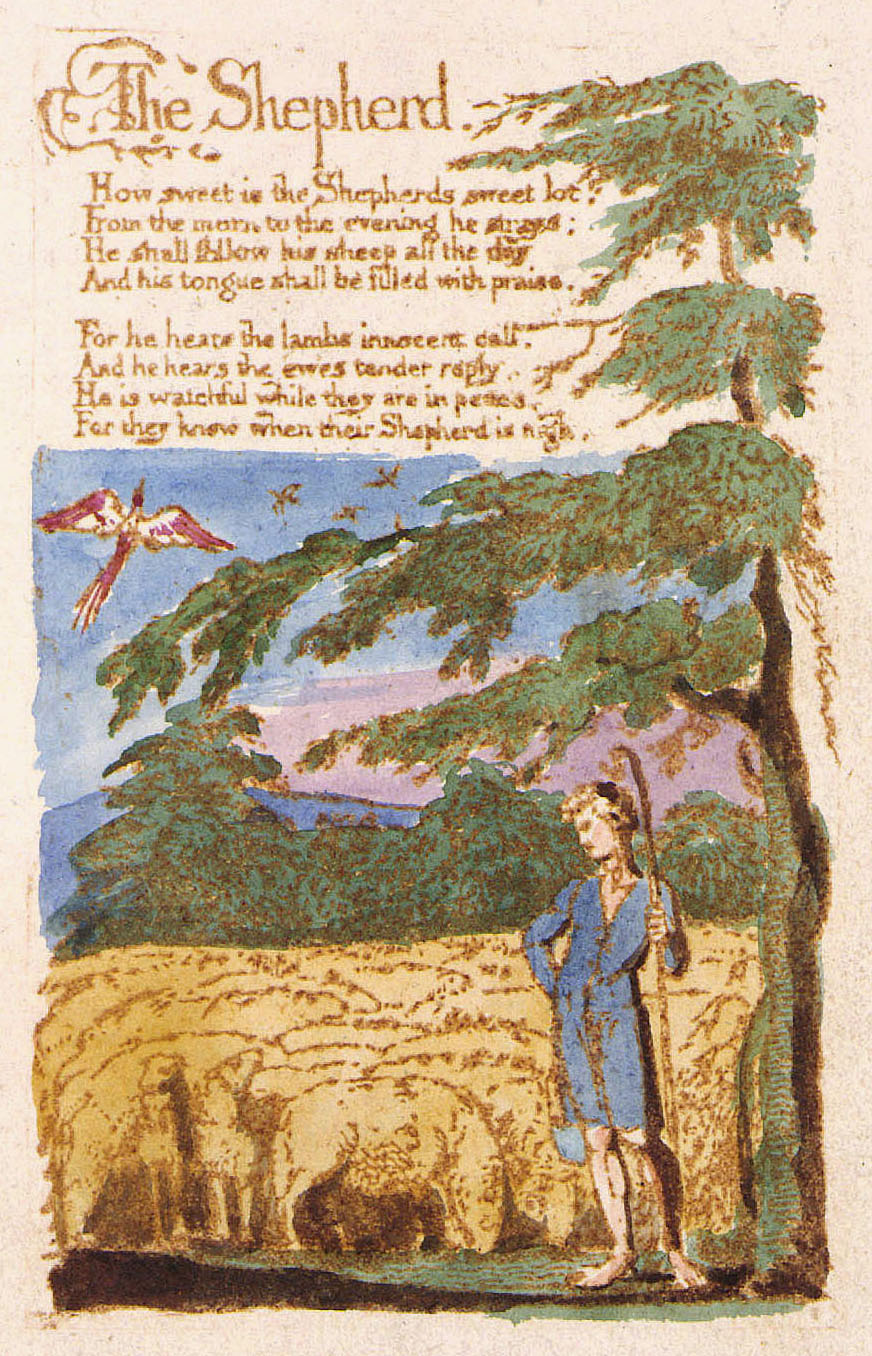 The Shepherd.
How sweet is the Shepherds sweet lot,
From the morn to the evening he strays;
He shall follow his sheep all the day
And his tongue shall be filled with praise.
For he hears the lambs innocent call,
And he hears the ewes tender reply.
He is watchful while they are in peace,
For they know when their Shepherd is nigh.